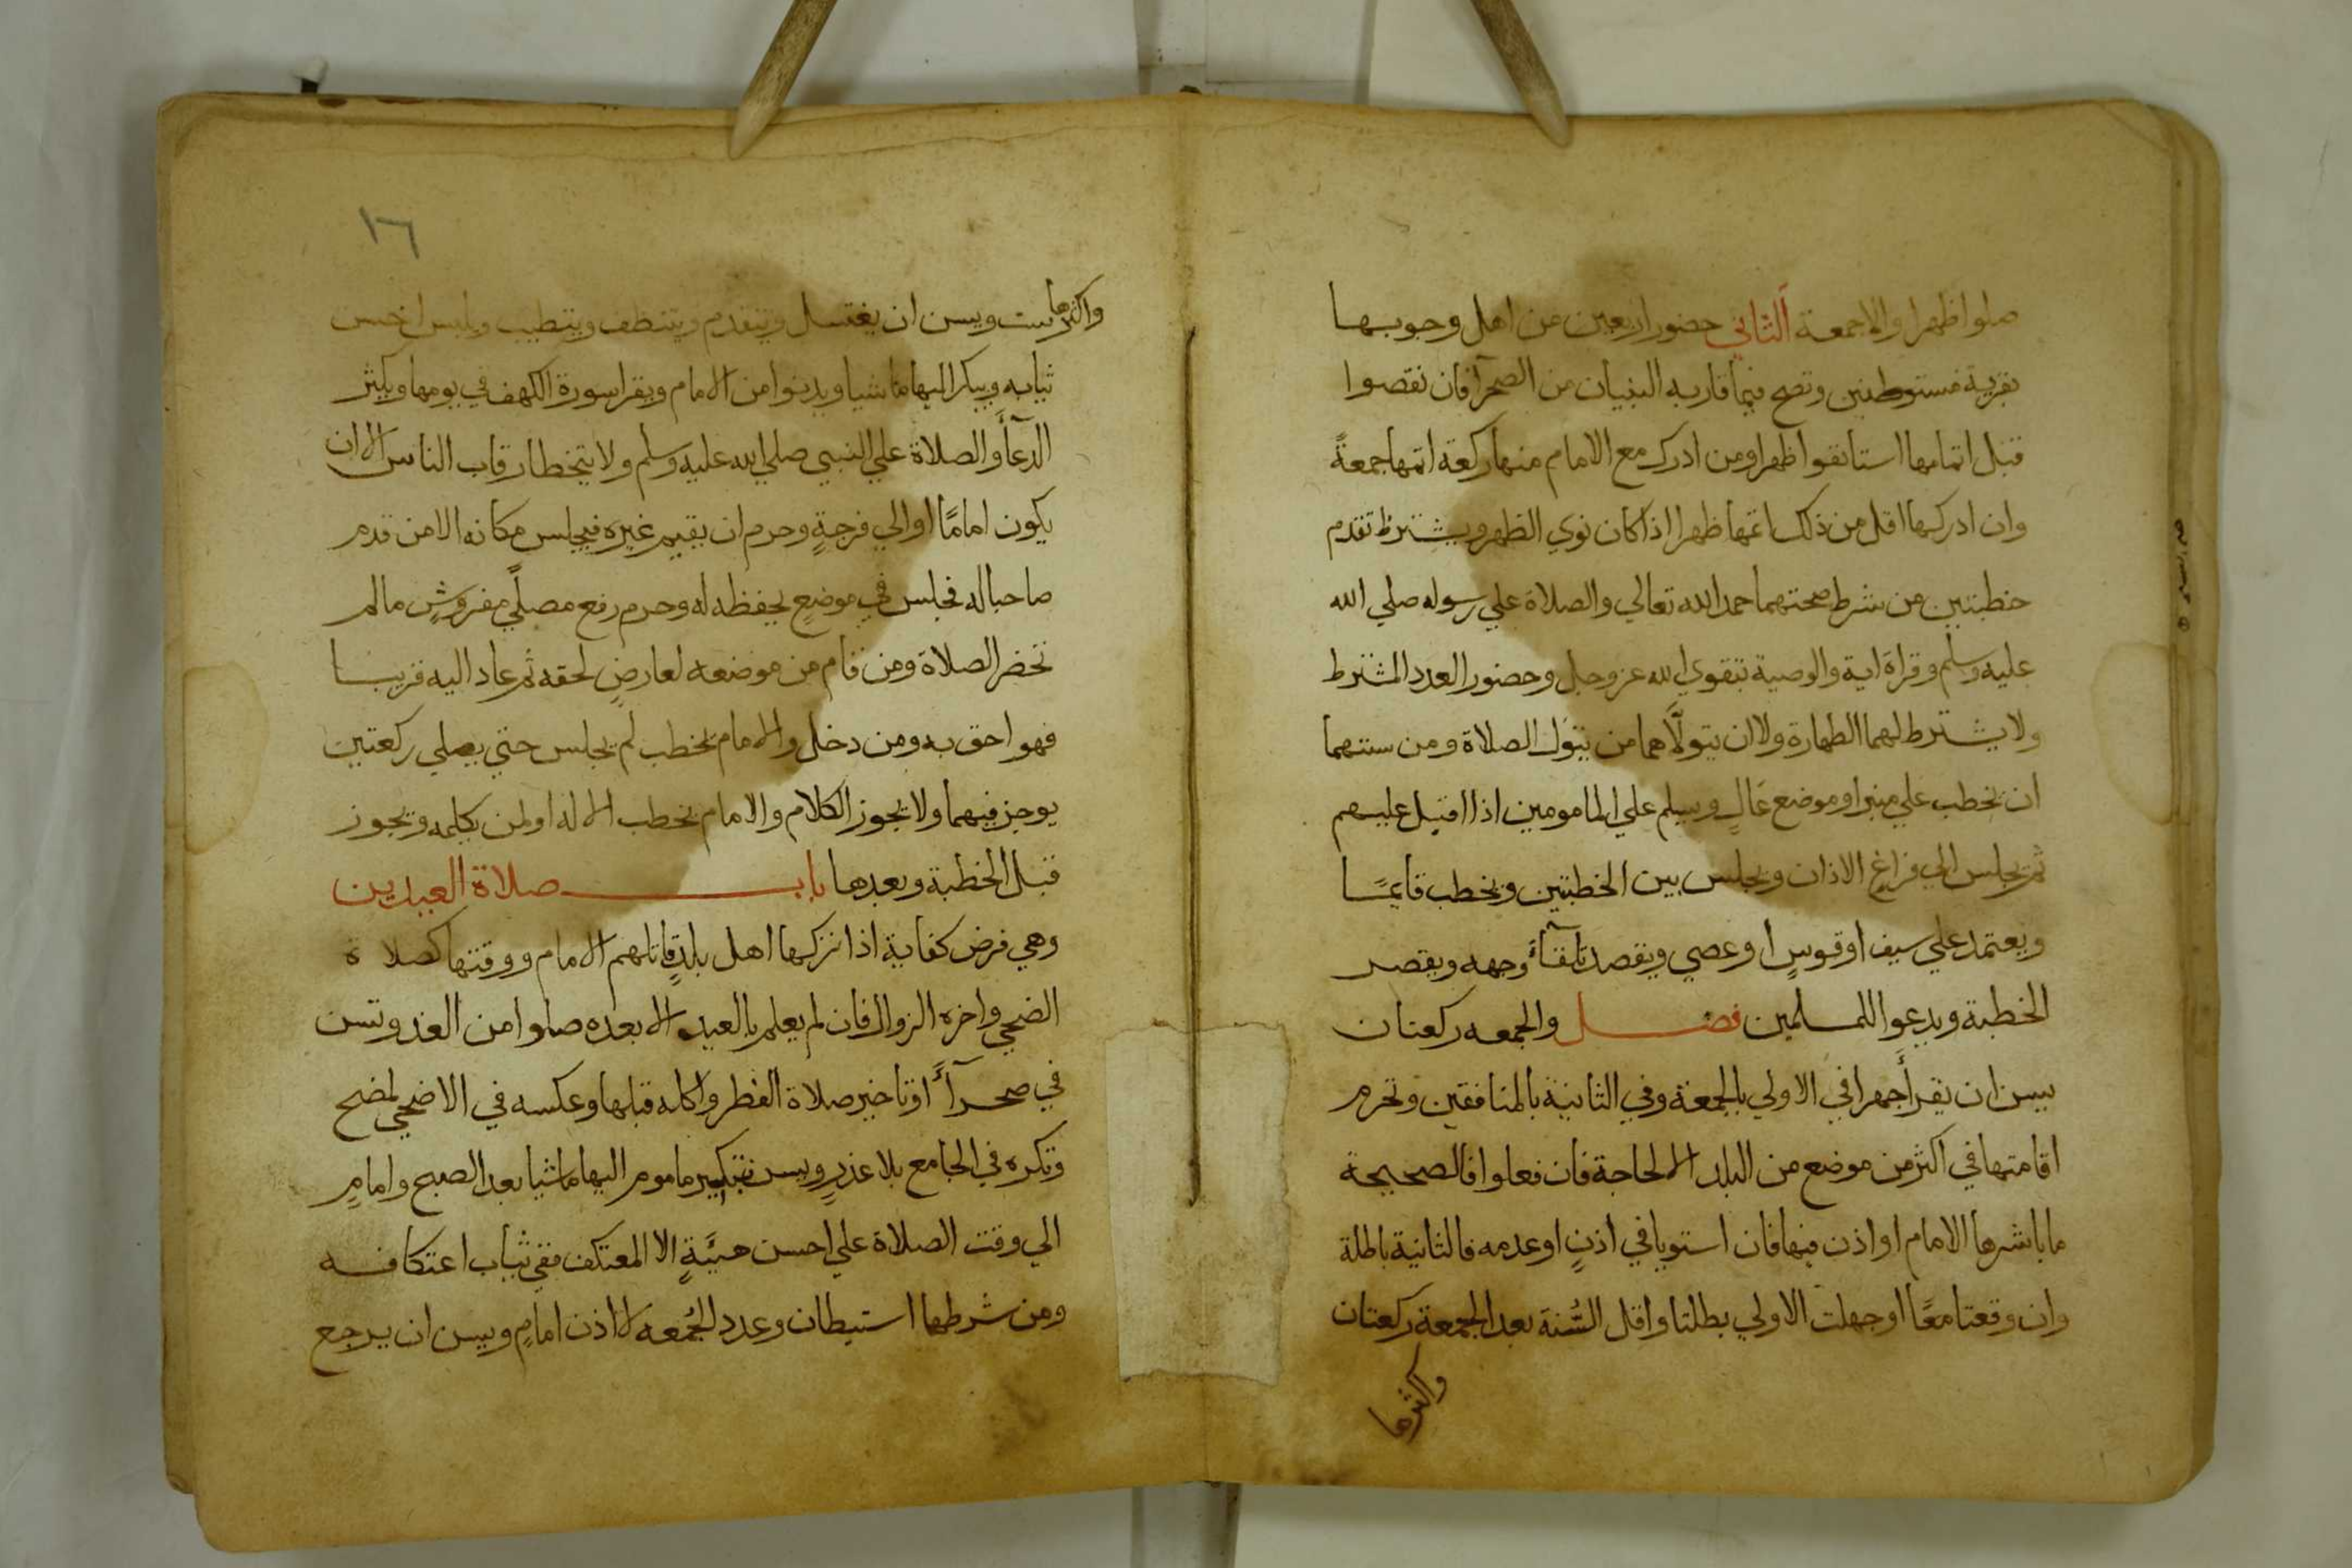 صلوا ظهرا والا جمعة الثاني حضور اربعين من اهل وجوبها
بقرية مستوطنين وتصح فيما قارب البنيان من الصحرآ فان نقصوا
قبل اتمامها استانفوا ظهرا ومن ادرك مع الامام منها ركعة اتمها جمعةً
وان ادركها اقل من ذلك اتمها ظهرا اذا كان نوي الظهر ويشترط تقدم
خطبتين من شرط صحتهما حمد الله تعالي والصلاة علي رسوله صلي الله
عليه وسلم وقراة اية والوصية بتقوي الله عز وجل وحضور العدد المشترط
ولا يشترط لهما الطهارة ولا ان يتولّاهما من يتولي الصلاة ومن سننهما
ان يخطب علي منبر او موضع عالٍ ويسلم علي المامومين اذا اقبل عليهم
ثم يجلس الي فراغ الاذان ويجلس بين الخطبتين ويخطب قايمًا
ويعتمد علي سيف او قوسٍ او عصي ويقصد تلقآءَ وجهه ويقصر
الخطبة ويدعوا للمسلمين فصل والجمعه ركعتان
يسن ان يقرأ جهرا في الاولي بالجمعة وفي الثانية بالمنافقين وتحرم
اقامتها في اكثر من موضع من البلد الا لحاجة فان فعلوا فالصحيحة
ما باشرها الامام او اذن فيها فان استويا في اذنٍ او عدمه فالثانية باطلة
وان وقعتا معًا او جهلت الاولي بطلتا واقل السُّنة بعد الجمعة ركعتان
واكثرها
١٦
واكثرها ست ويسن ان يغتسل ويتقدم ويتنظف ويتطيب ويلبس احسن
ثيابه ويبكر اليها ماشيا ويدنوا من الامام ويقرا سورة الكهف في يومها ويكثر
الدعآ والصلاة علي النبي صلي الله عليه وسلم ولا يتخطا رقاب الناس الا ان
يكون امامًا او الي فرجةٍ وحرم ان يقيم غيره فيجلس مكانه الا من قدم
صاحبا له فجلس في موضعٍ يحفظه له وحرم رفع مصلًّي مفروشٍ مالم
تحضر الصلاة ومن قام من موضعه لعارضٍ لحقه ثم عاد اليه قريبا
فهو احق به ومن دخل والامام يخطب لم يجلس حتي يصلي ركعتين
يوجز فيهما ولا يجوز الكلام والامام يخطب الا له او لمن يكلمه ويجوز
قبل الخطبة وبعدها باب صلاة العيدين
وهي فرض كفاية اذا تركها اهل بلدٍ قاتلهم الامام ووقتها كصلاة
الضحي واخره الزوال فان لم يعلم بالعيد الا بعده صلوا من الغد وتسن
في صحرآءَ وتاخير صلاة الفطر واكله قبلها وعكسه في الاضحي لمضح
وتكره في الجامع بلا عذرٍ ويسن تبكير ماموم اليها ماشيا بعد الصبح وامامٍ
الي وقت الصلاة علي احسن هيَّةٍ الا المعتكف ففي ثياب اعتكافه
ومن شرطها استيطان وعدد الجُمعه لا اذن امامٍ ويسن ان يرجع